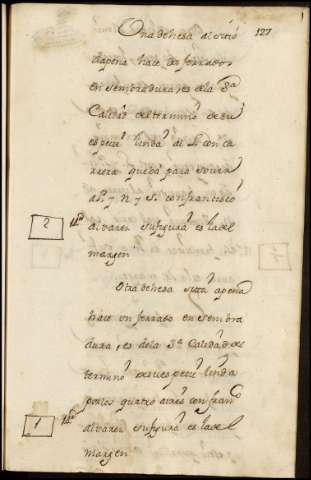 127
Una dehesa al sitio
dapena hace dos ferrados
en sembradura, es de la 3ª
Calidad del termino de su
especie linda al L. con ca
rrera que ba para
al P. y N. y S. con francisco
alvarez su figura es la del
2
margen
Otra dehesa sitta apena
hace un ferrado en sembra
dura, es de la 3ª Calidad del
termino de su especie linda
por los quatro aires con franco
1
alvarez su figura es la del
margen